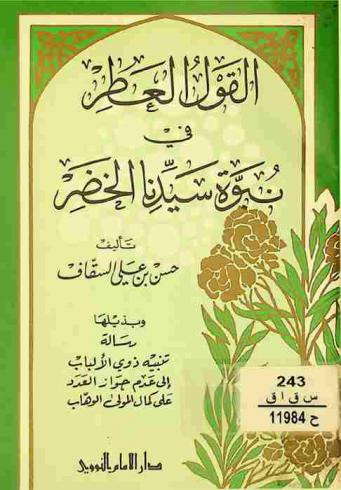 القول العطر
في
نبوّة سيّدنا الخضر
تأليف
حسن بن علي السقاف
وبذيلها
رسالة
تنبيه ذوي الألباب
إلى عدم جواز العدد
على كمال المولى الوهاب
243
س ق ا ق
ح 11984
دار الإمام النووي